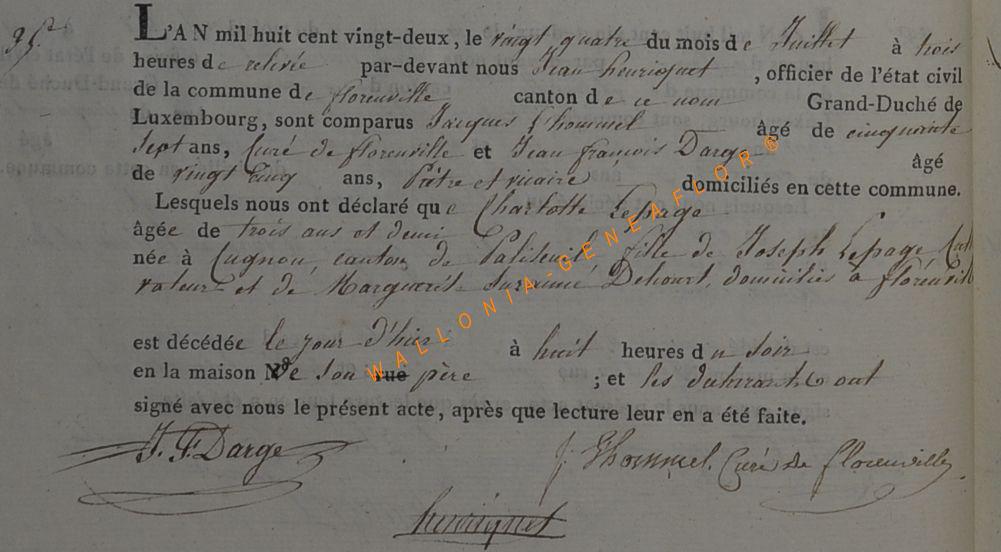 35e
L'AN mil huit cent vingt-deux, le vingt quatre du mois de Juillet à trois
heures de relevée par-devant nous Jean henrioquet, officier de l'état civil
de la commune de florenville canton de ce nom Grand-Duché de
Luxembourg, sont comparus Jacques Thommel âgé de cinquante
sept ans, Curé de florenville et Jean françois Darge âgé
de vingt cinq ans, Prêtre et vicaire domiciliés en cette commune.
Lesquels nous ont déclaré que Charlotte Lepage
âgée de trois ans et demi
née à Cugnon, canton de Paliseul fille de Joseph Lepage Cult
vateur et de Marguerite Suzanne Dehourt, domiciliés à florenvill
est décédée le jour d'hier à huit heures du soir
en la maison de son rue père ; et les déclarants ont
signé avec nous le présent acte, après que lecture leur en a été faite.
J. F. Darge J. Thommel. Curé de florenville
henrioquet
WALLONIA-GENEAFLOR ©